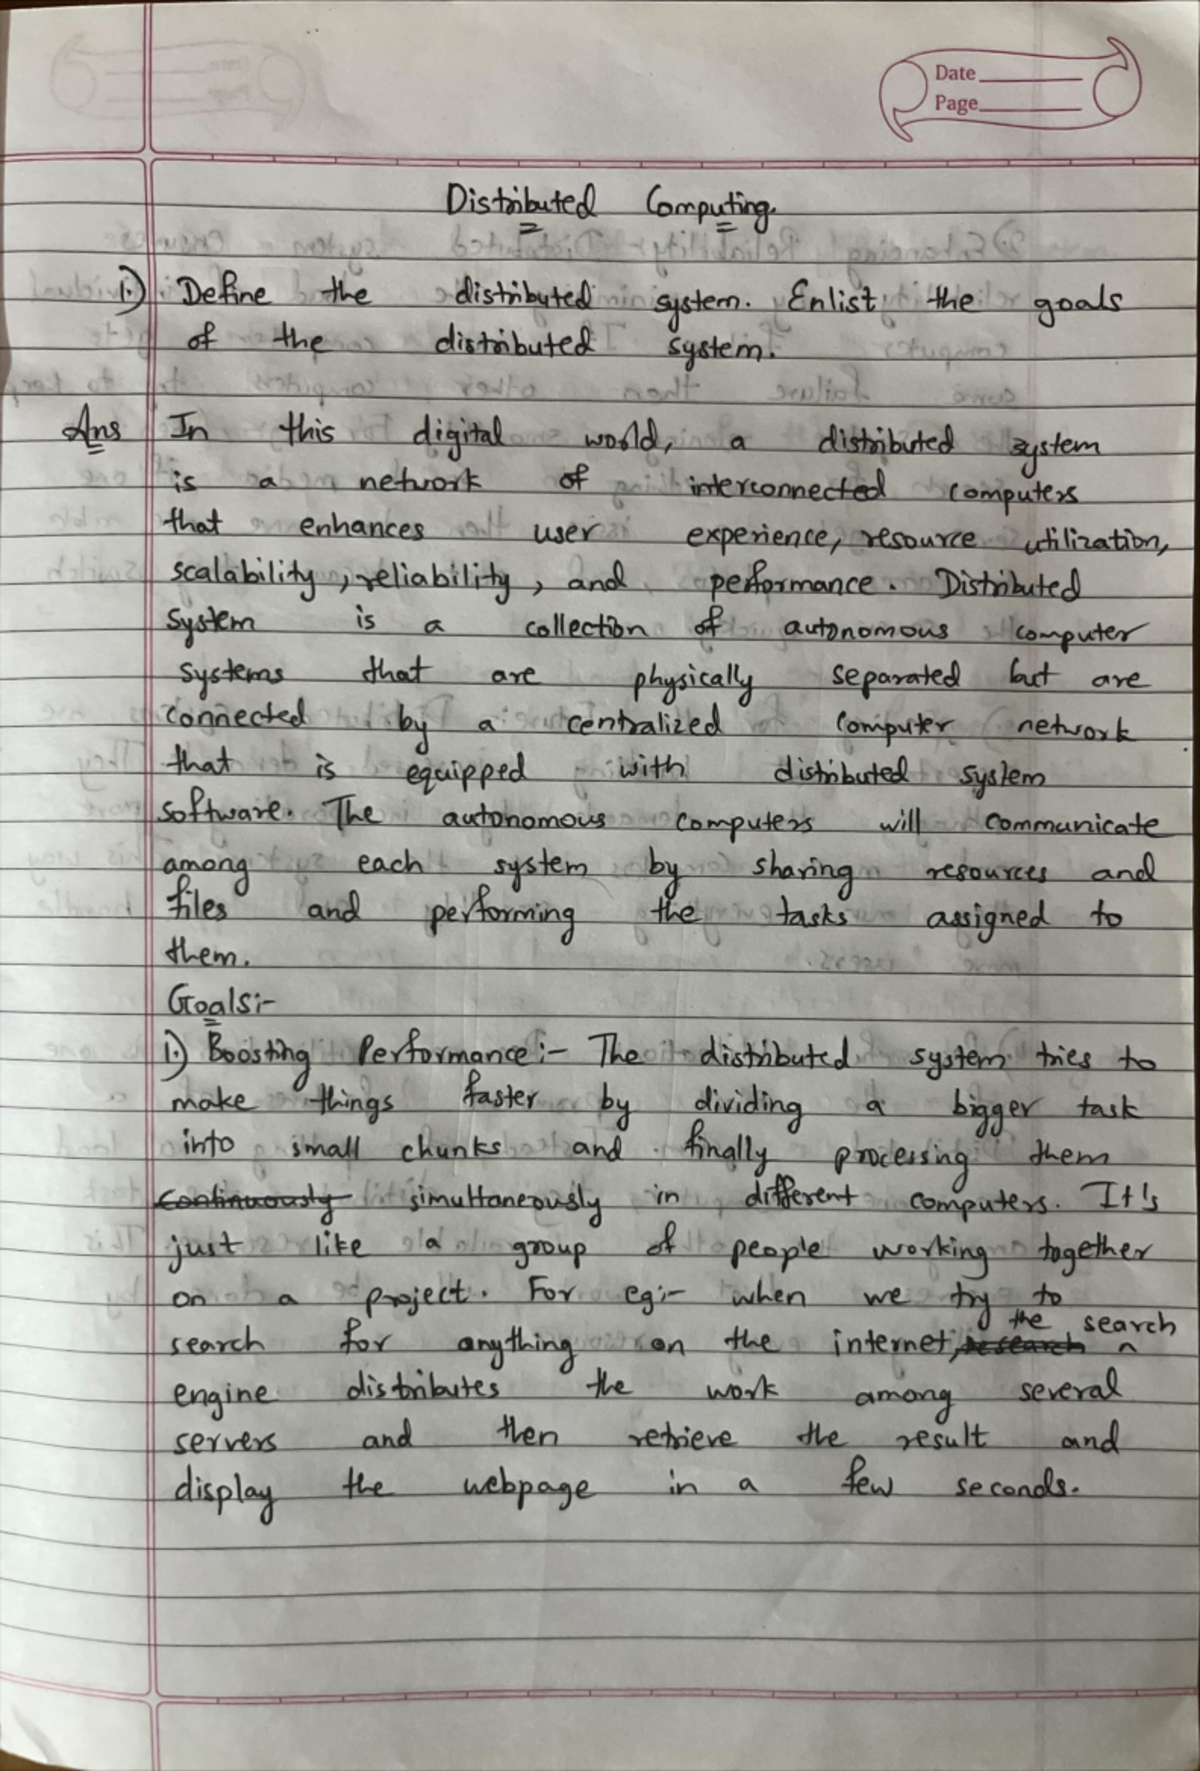 Date
Page
Distributed Computing.
1.) Define the distributed system. Enlist the goals
of the distributed system.
Ans In this digital world, a distributed system
is a network of interconnected computers
that enhances user experience, resource utilization,
scalability, reliability, and performance. Distributed
system is a collection of autonomous computer
systems that are physically separated but are
connected by a centralized computer network
that is equipped with distributed system
software. The autonomous computers will communicate
among each system by sharing resources and
files and performing the tasks assigned to
them.
Goals:-
1.) Boosting Performance:- The distributed system tries to
make things faster by dividing a bigger task
into small chunks and finally processing them
continuously simultaneously in different computers. It's
just like a group of people working together
on a project. For eg:- when we try to
search for anything on the internet, the search
engine distributes the work among several
servers and then retrieve the result and
display the webpage in a few seconds.